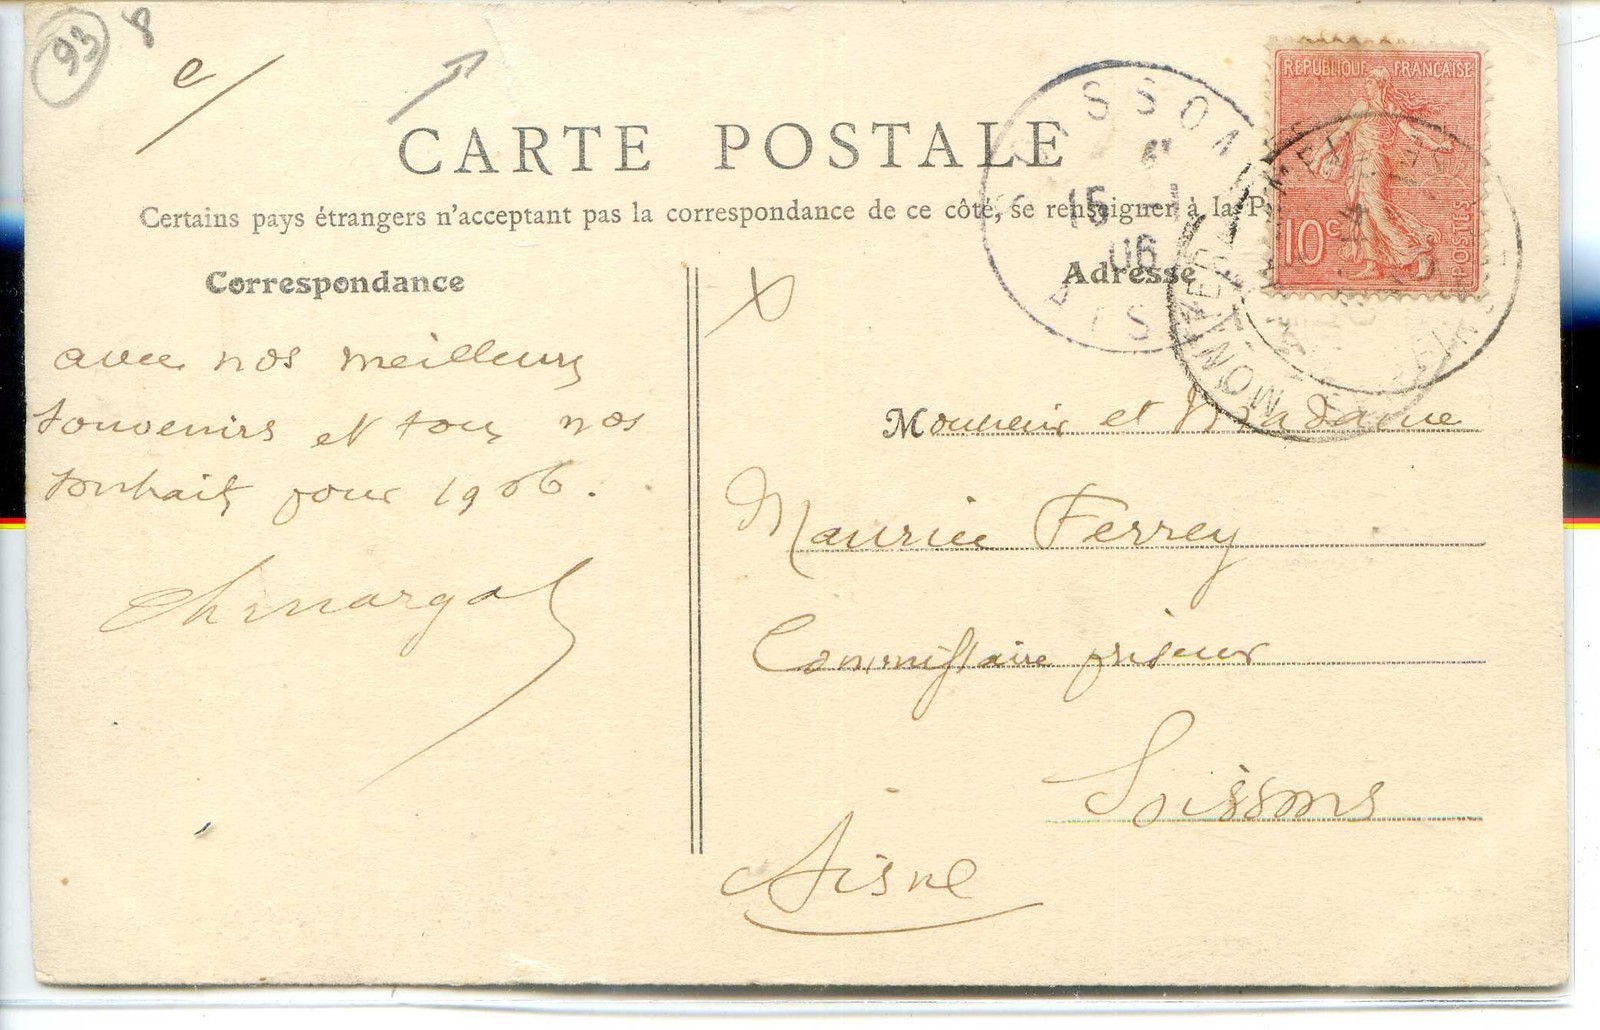 93
8
e/
CARTE POSTALE
Certains pays étrangers n'acceptant pas la correspondance de ce côté, se renseigner à la P
Correspondance
Adresse
REPUBLIQUE FRANÇAISE
10c
POSTES
SOISSONS
15 -1
06
AISNE
avec nos meilleurs
souvenirs et tous nos
souhaits pour 1906.
Monsieur et Madame
Maurice Ferrey
Commissaire priseur
Soissons
Aisne